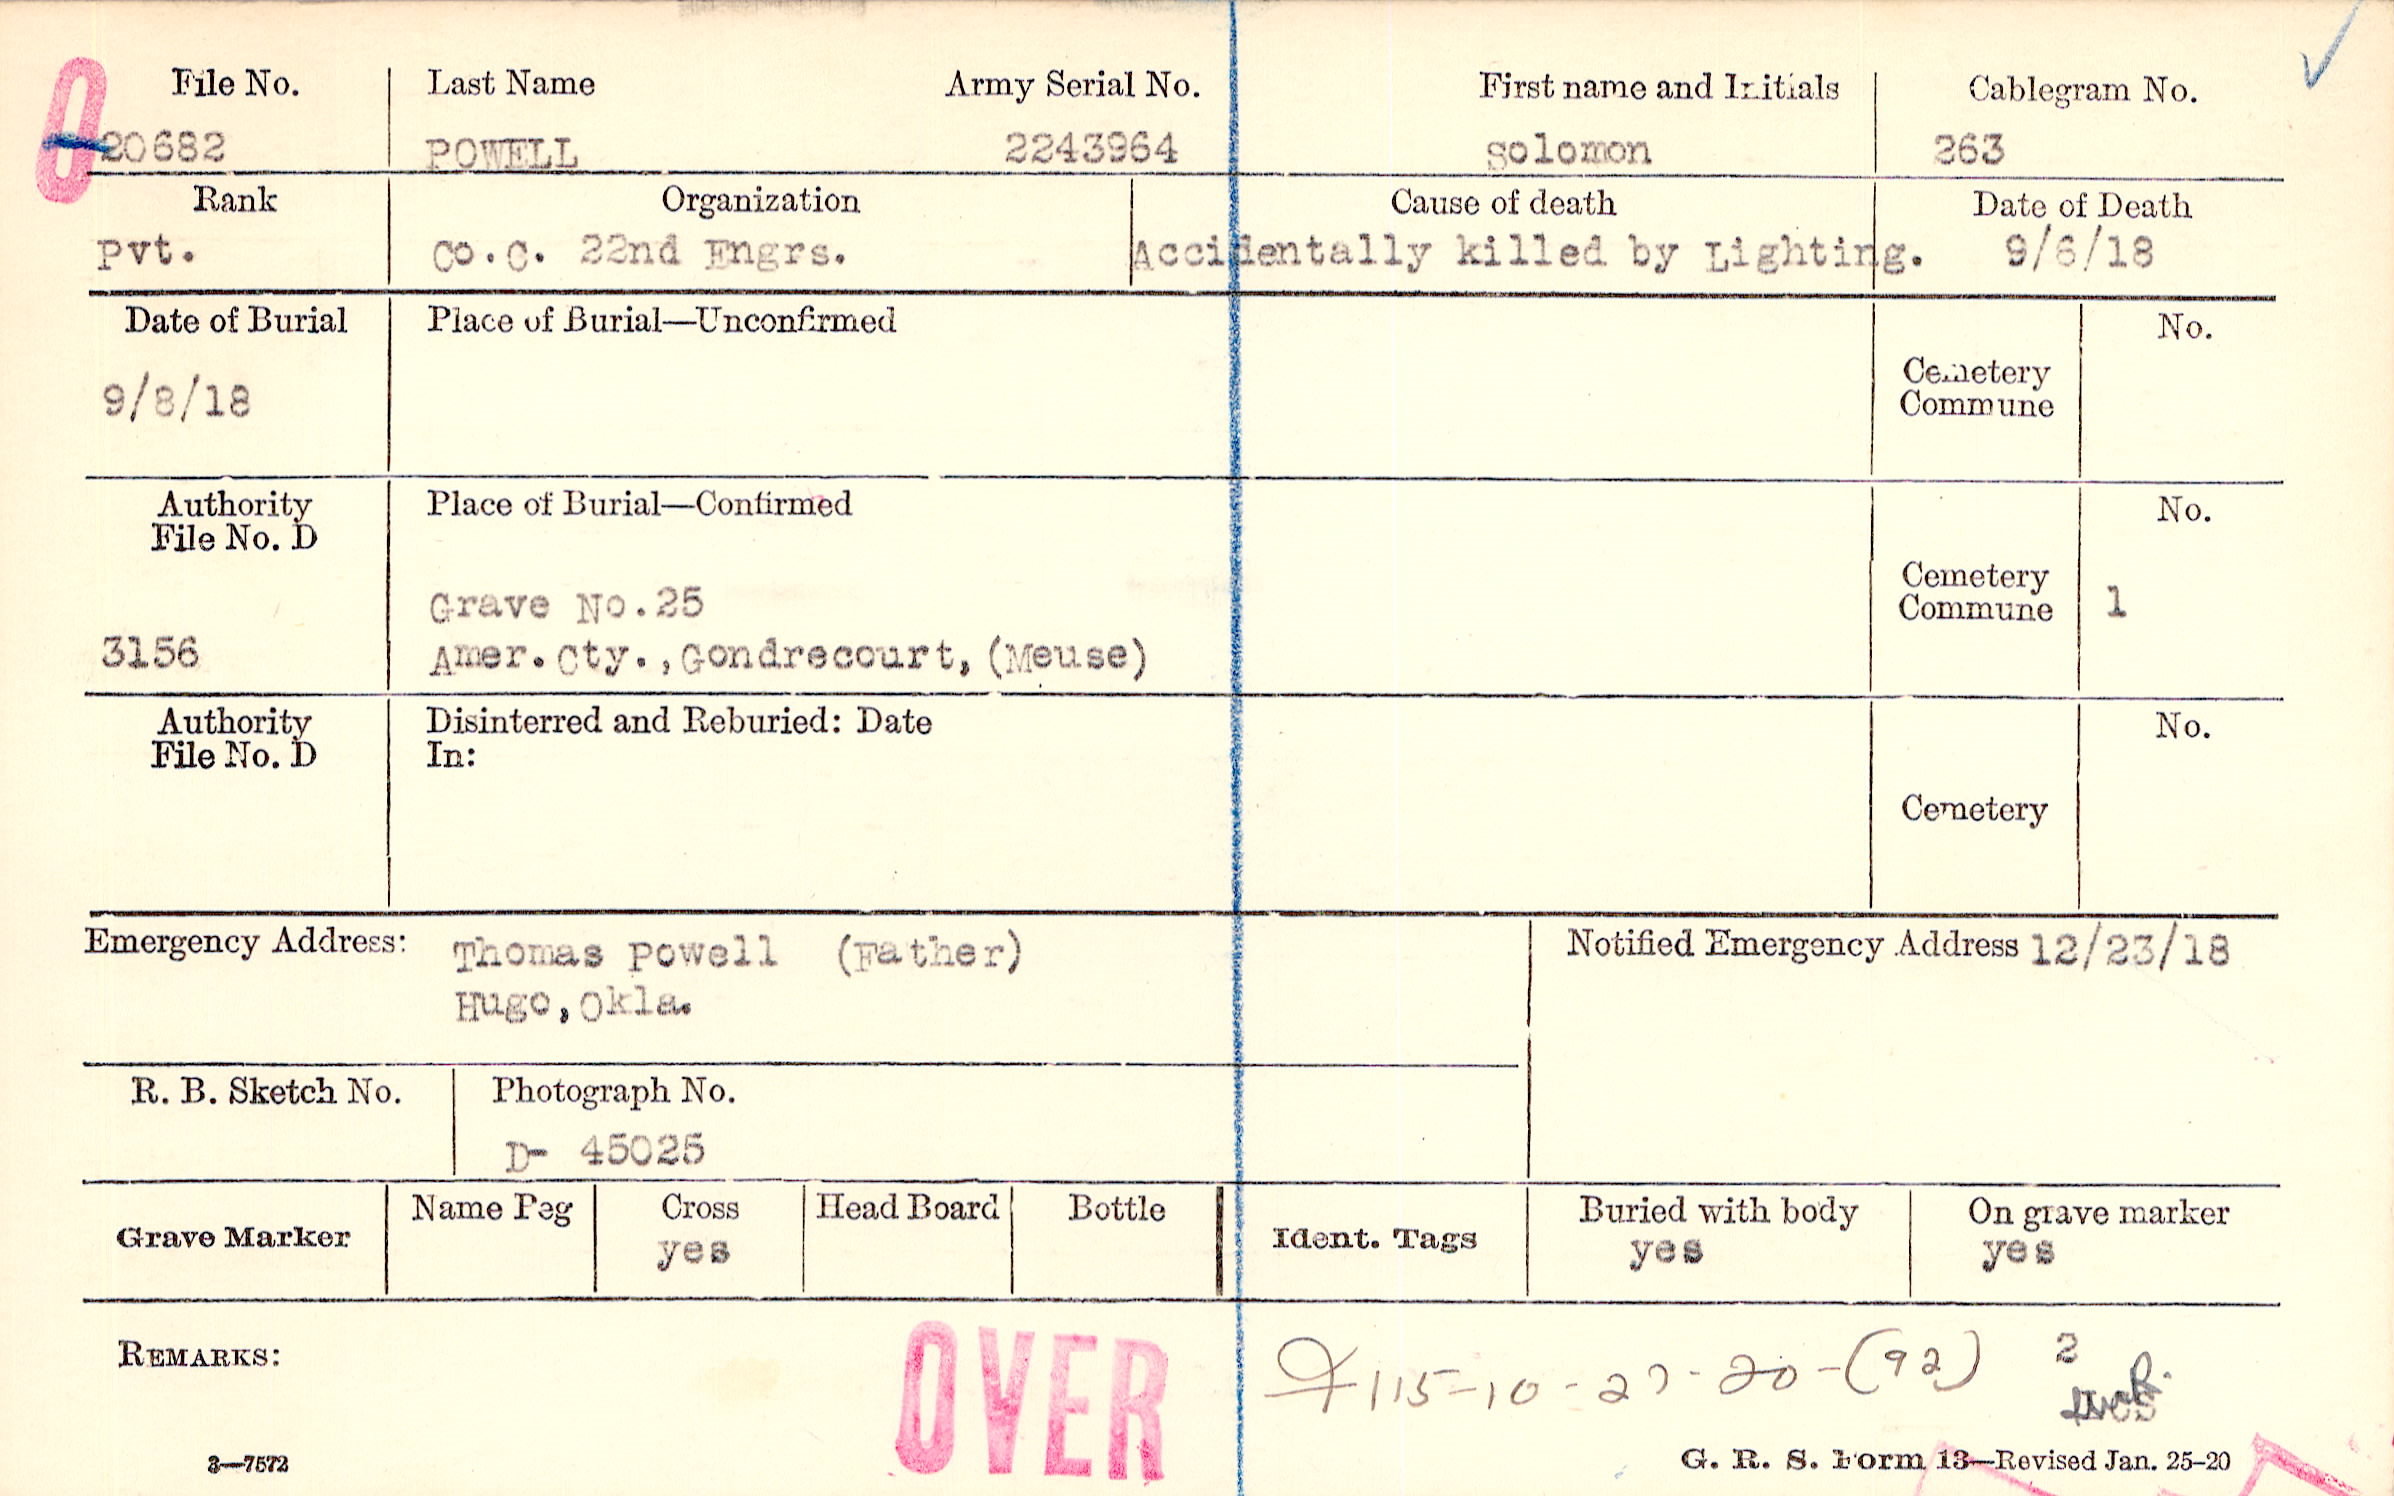 File No. Last Name Army Serial No. First name and Initials Cablegram No.
0 20682 POWELL 2243964 Solomon 263
Rank Organization Cause of death Date of Death
Pvt. Co.C. 22nd Engrs. Accidentally killed by Lighting. 9/6/18
Date of Burial Place of Burial—Unconfirmed No.
9/8/18 Cemetery
Commune
Authority Place of Burial—Confirmed No.
File No. D
Cemetery
Grave No.25 Commune 1
3156 Amer.Cty.,Gondrecourt,(Meuse)
Authority Disinterred and Reburied: Date No.
File No. D In:
Cemetery
Emergency Address: Thomas Powell (Father) Notified Emergency Address 12/23/18
Hugo,Okla.
R. B. Sketch No. Photograph No.
D- 45025
Grave Marker Name Peg Cross Head Board Bottle Ident. Tags Buried with body On grave marker
yes yes yes
REMARKS: OVER 115-10-27-20-(92) 2
3—7572 G. R. S. Form 13—Revised Jan. 25-20